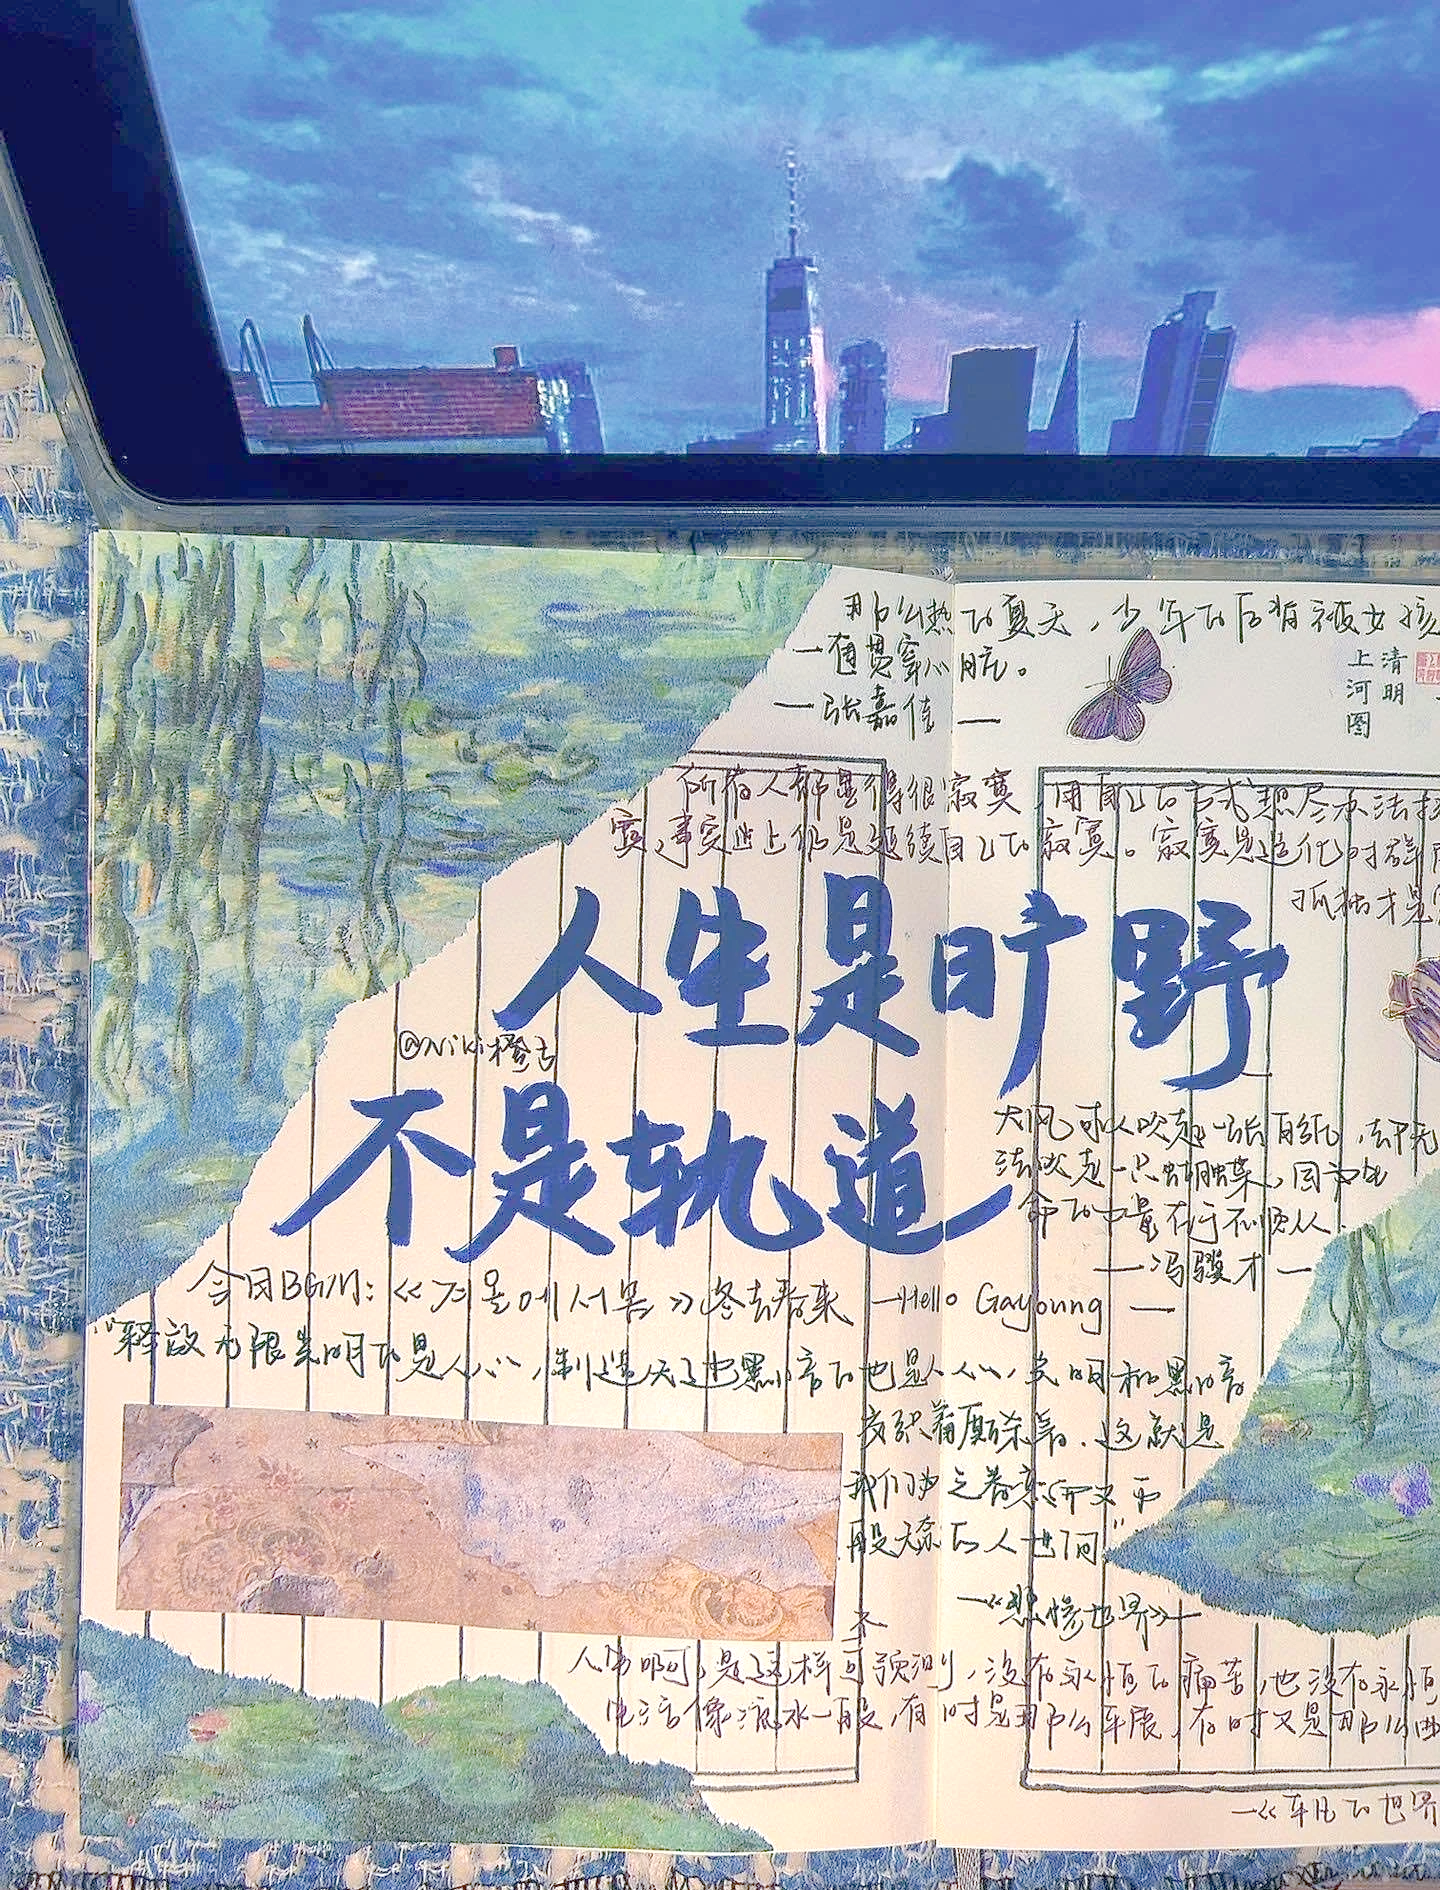 那么热的夏天，少年的后背被女孩
一直贯穿心脏。
—张嘉佳—
清明
上河图
所有人都显得很寂寞，用自己的方式想尽办法排
寞，事实上仍是延续自己的寂寞。寂寞是造化对群
孤独才是
人生是旷野
@Niki橙
不是轨道
大风可以吹走一张白纸，却无
法吹走一只蝴蝶，因为生
命的力量在于不顺从.
—冯骥才—
今日BGM:《겨울에서 봄》冬去春来 —Hello Gayoung—
“释放无限光明的是人心，制造无边黑暗的也是人心，光明和黑暗
交织着厮杀着.这就是
我们为之眷恋而又万
般无奈的人世间”
—《悲惨世界》—
不
人常啊，是这样可预测，没有永恒的痛苦，也没有永恒
生活像流水一般，有时是那么平展，有时又是那么曲
—《平凡的世界